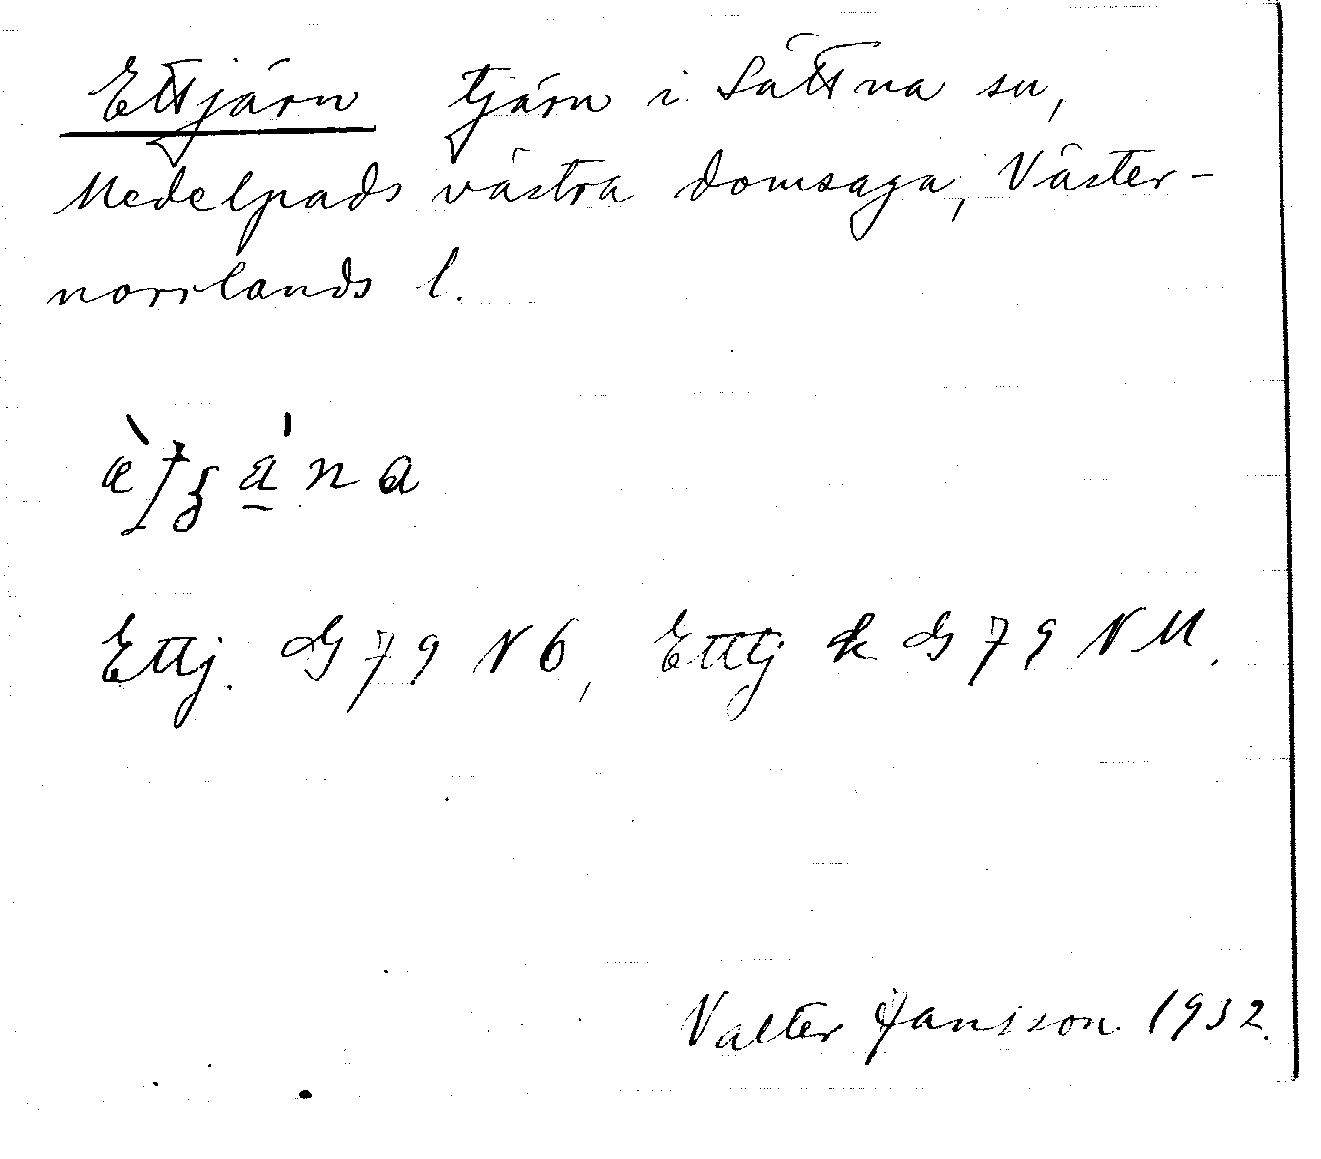 Ettjärn tjärn i Sättna sn,
Medelpads västra domsaga, Väster-
norrlands l.
Ettj. G 79 N6, Etttj k G 79 NM.
Valter Jansson 1932.